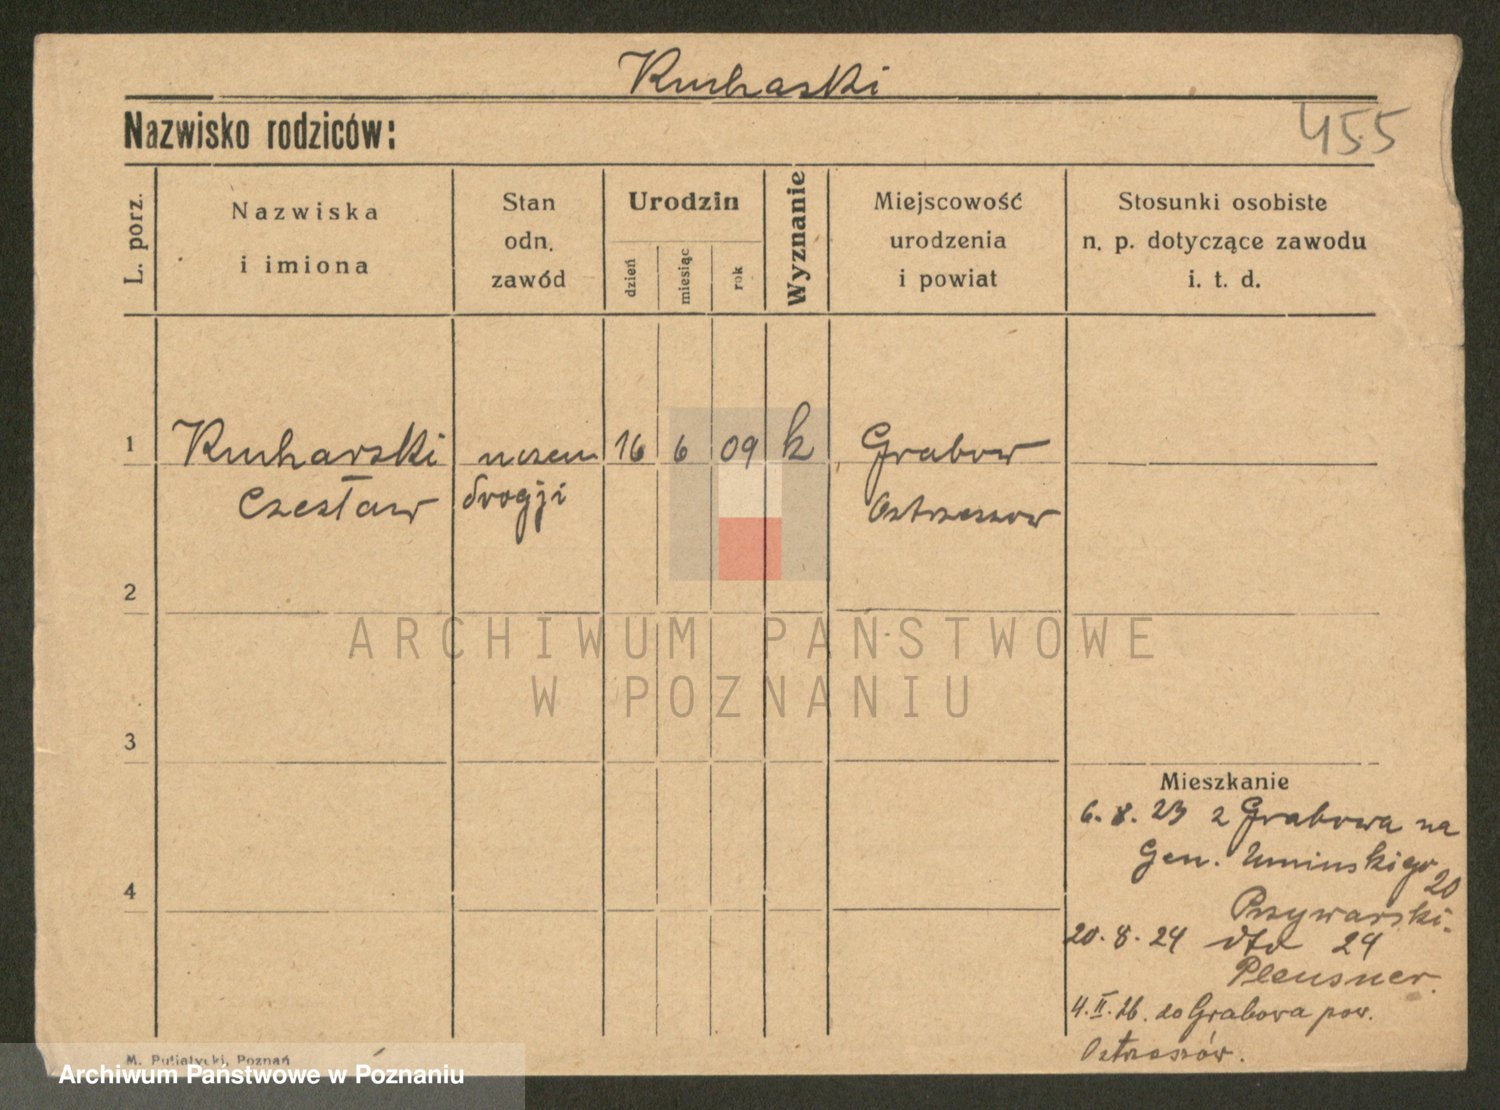 Kuchaski
Nazwisko rodziców:
455
L. porz.
Nazwiska
i imiona
Stan
odn.
zawód
Urodzin
dzień
miesiąc
rok
Wyznanie
Miejscowość
urodzenia
i powiat
Stosunki osobiste
n. p. dotyczące zawodu
i. t. d.
1
Kucharski
Czesław
uczeń
drogji
16
6
09
k
Grabow
Ostrzeszow
2
ARCHIWUM PAŃSTWOWE
W POZNANIU
3
Mieszkanie
6. 8. 23 z Grabowa na
Gen. Umińskiego 20
Przywarski.
20. 8. 24 dto 24
Pleusner.
4. II. 26. do Grabowa pow.
Ostrzeszów.
4
M. Putiatycki, Poznań
Archiwum Państwowe w Poznaniu